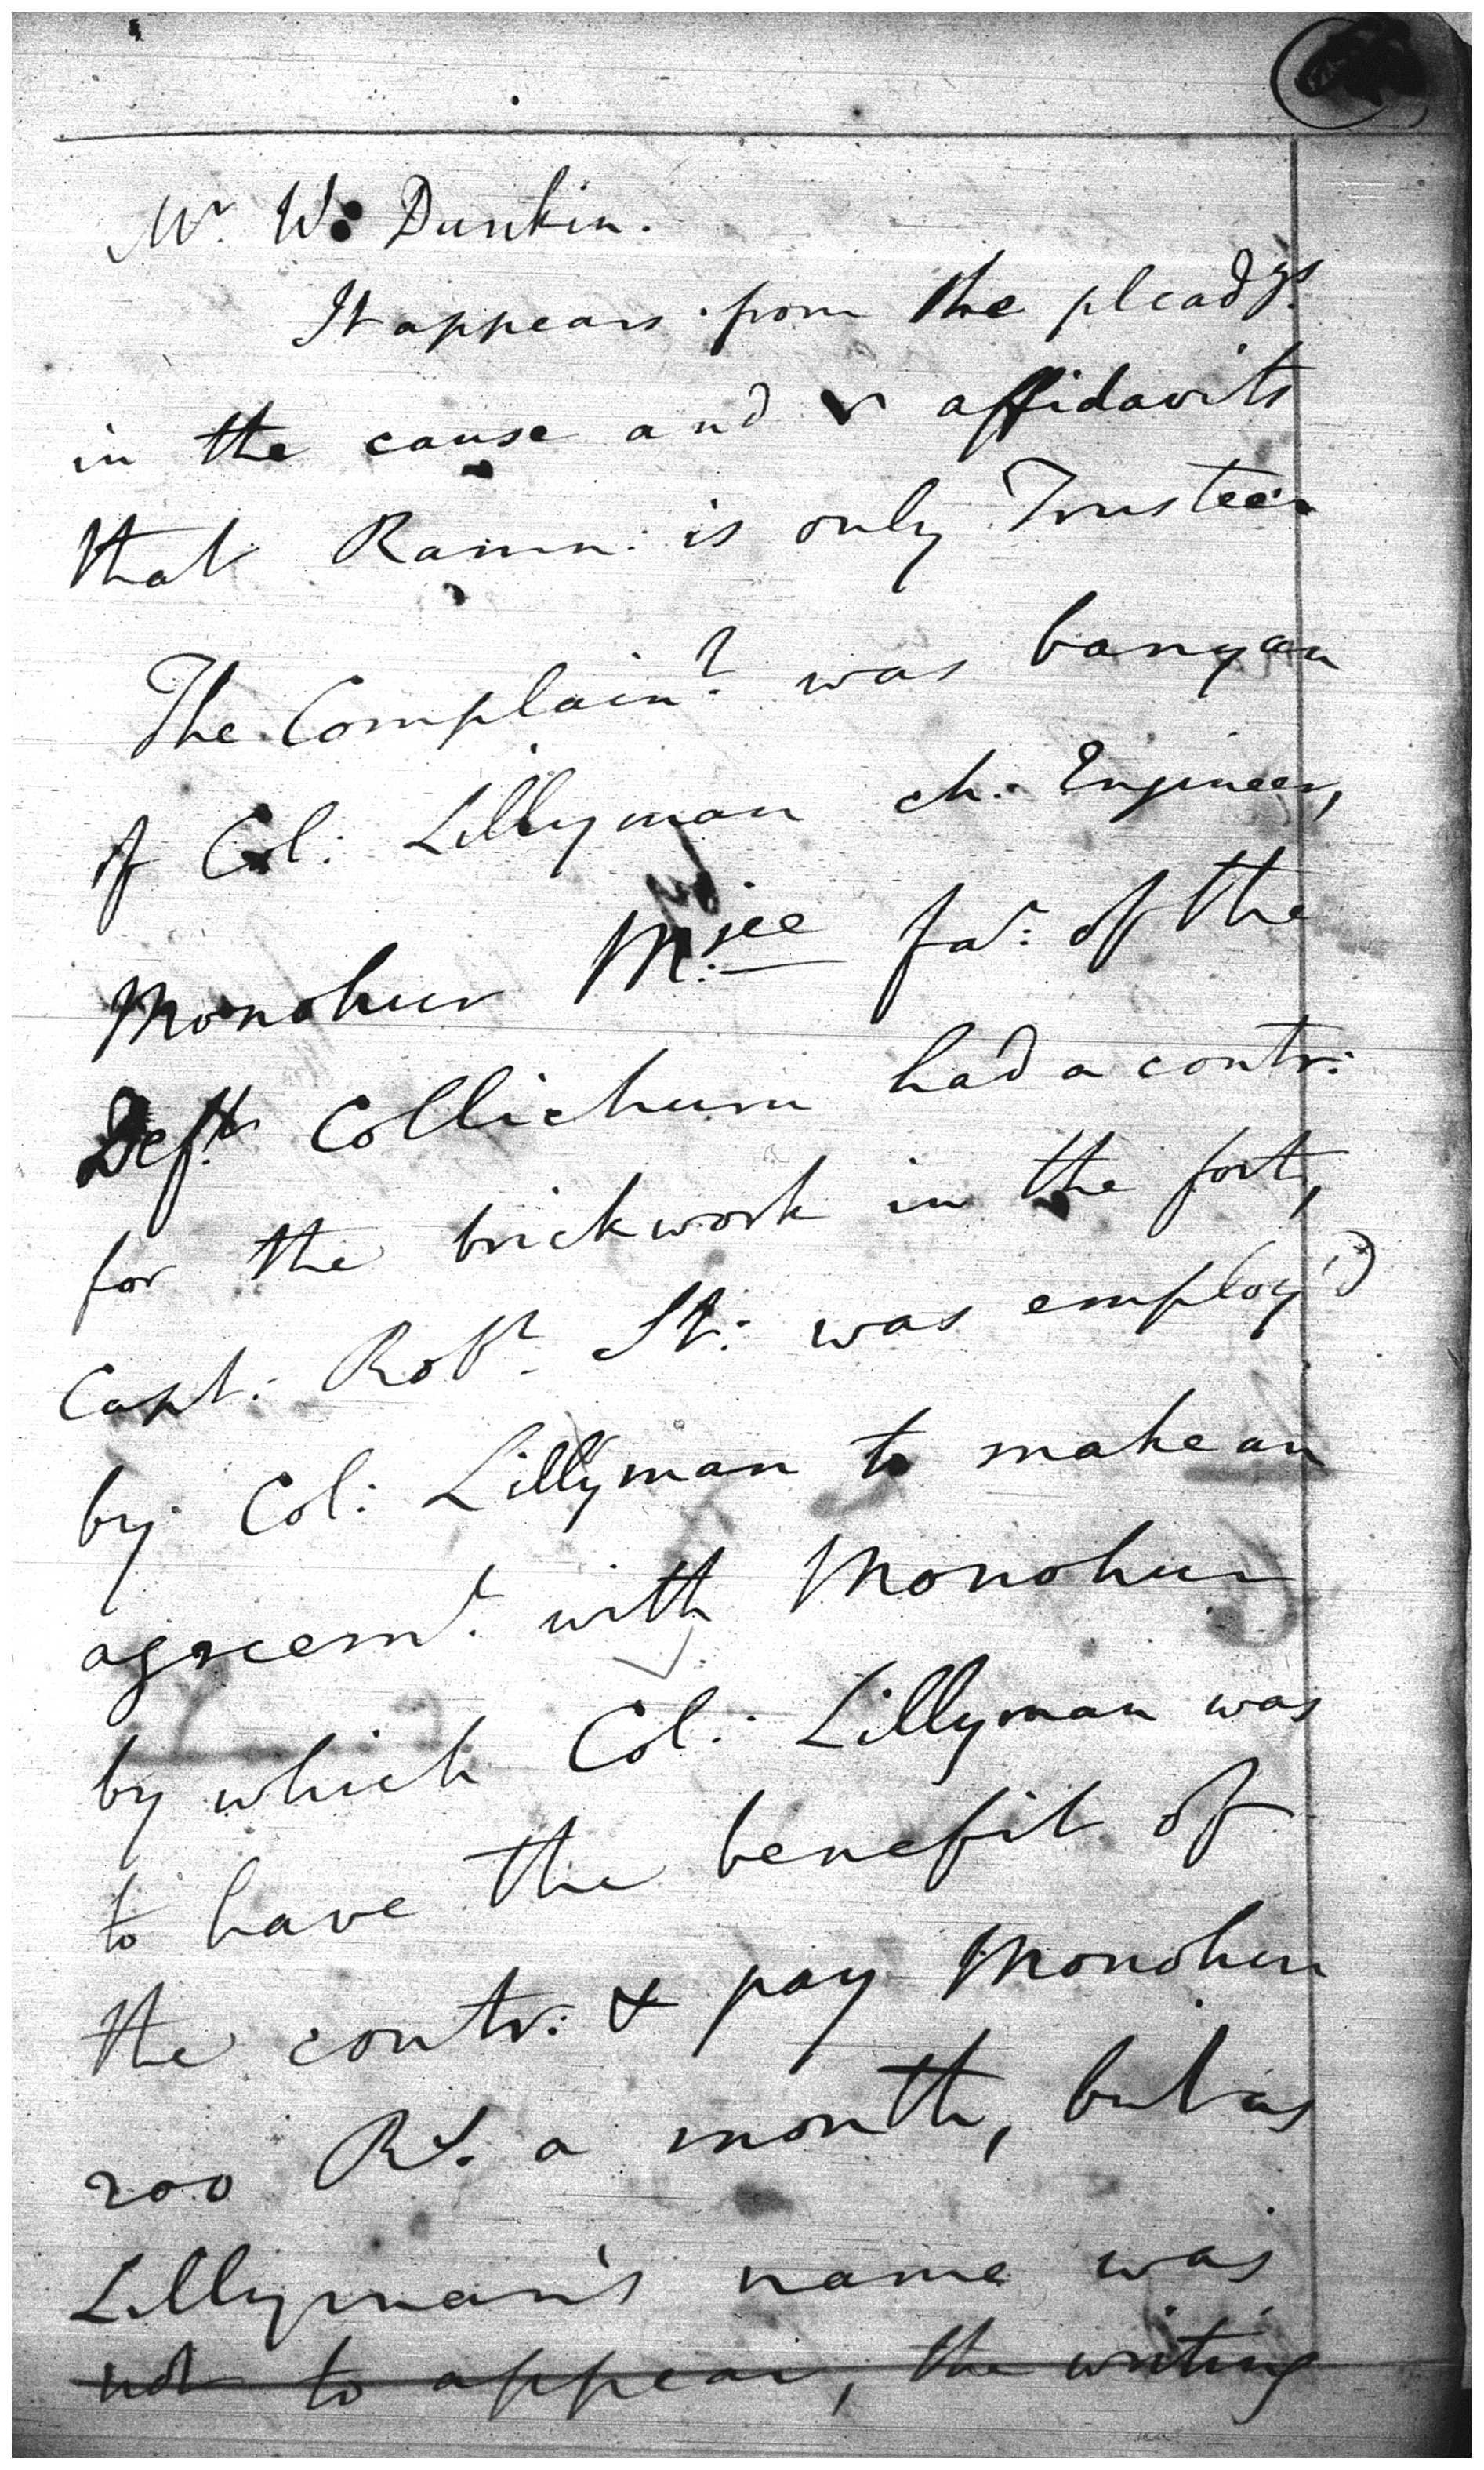 Mr. W. Dunkin.
It appears from the pleadgs.
in the cause and affidavits
that Ramn: is only Trustee
The Complaint was banyan
of Col: Lillyman ch. Engineer,
Monohur M:jee far: of the
Defts Collichurn had a contr:
for the brickwork in the fort,
Capt: Robt. St: was employ'd
by Col: Lillyman to make an
agreemt. with Monohur
by which Col: Lillyman was
to have the benefit of
the contr: & pay Monohur
200 Rs. a month, but as
Lillyman's name was
not to appear, the writing